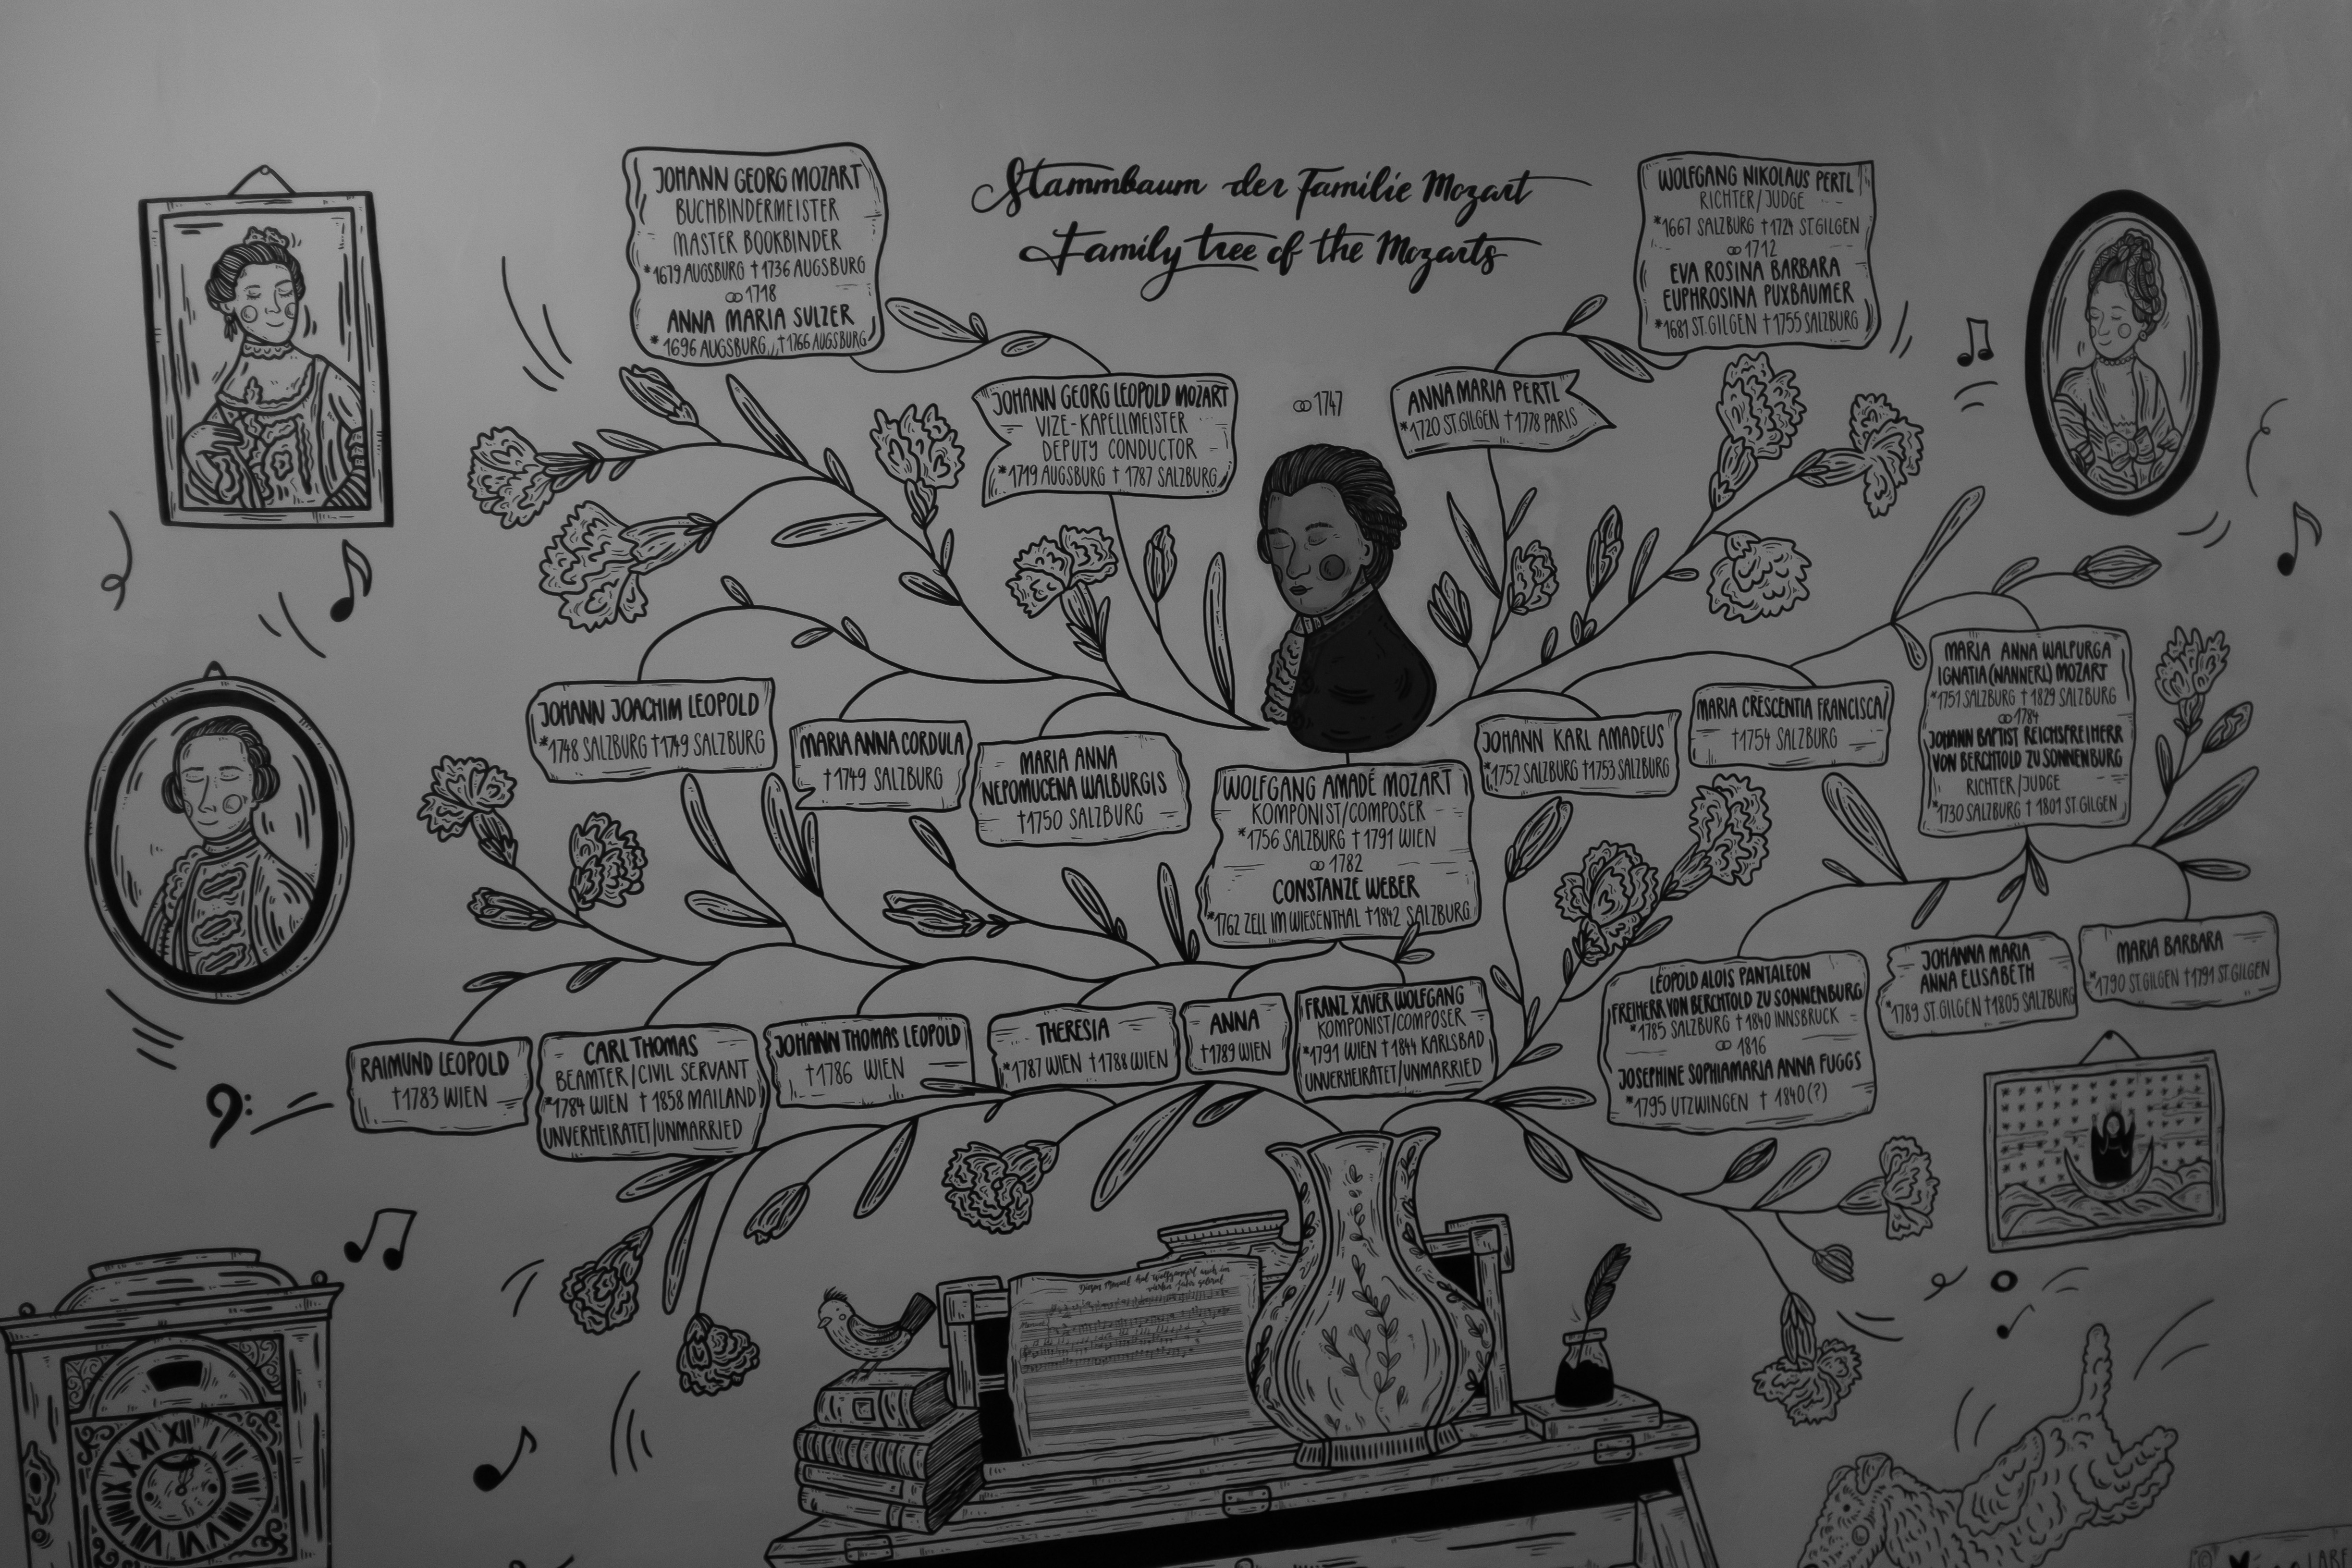 Stammbaum der Familie Mozart
Family tree of the Mozarts
JOHANN GEORG MOZART
BUCHBINDERMEISTER
MASTER BOOKBINDER
*1679 AUGSBURG †1736 AUGSBURG
⚭1718
ANNA MARIA SULZER
*1696 AUGSBURG †1766 AUGSBURG
WOLFGANG NIKOLAUS PERTL
RICHTER/JUDGE
*1667 SALZBURG †1724 ST.GILGEN
⚭1712
EVA ROSINA BARBARA
EUPHROSINA PUXBAUMER
*1681 ST.GILGEN †1755 SALZBURG
JOHANN GEORG LEOPOLD MOZART
VIZE-KAPELLMEISTER
DEPUTY CONDUCTOR
*1719 AUGSBURG † 1787 SALZBURG
⚭1747
ANNA MARIA PERTL
*1720 ST.GILGEN †1778 PARIS
JOHANN JOACHIM LEOPOLD
*1748 SALZBURG †1749 SALZBURG
MARIA ANNA CORDULA
†1749 SALZBURG
MARIA ANNA
NEPOMUCENA WALBURGIS
†1750 SALZBURG
WOLFGANG AMADÉ MOZART
KOMPONIST/COMPOSER
*1756 SALZBURG †1791 WIEN
⚭1782
CONSTANZE WEBER
*1762 ZELL IM WIESENTHAL †1842 SALZBURG
JOHANN KARL AMADEUS
*1752 SALZBURG †1753 SALZBURG
MARIA CRESCENTIA FRANCISCA
†1754 SALZBURG
MARIA ANNA WALPURGA
IGNATIA (NANNERL) MOZART
*1751 SALZBURG †1829 SALZBURG
⚭1784
JOHANN BAPTIST REICHSFREIHERR
VON BERCHTOLD ZU SONNENBURG
RICHTER/JUDGE
*1730 SALZBURG †1801 ST.GILGEN
RAIMUND LEOPOLD
†1783 WIEN
CARL THOMAS
BEAMTER/CIVIL SERVANT
*1784 WIEN †1858 MAILAND
UNVERHEIRATET/UNMARRIED
JOHANN THOMAS LEOPOLD
†1786 WIEN
THERESIA
*1787 WIEN †1788 WIEN
ANNA
†1789 WIEN
FRANZ XAVER WOLFGANG
KOMPONIST/COMPOSER
*1791 WIEN †1844 KARLSBAD
UNVERHEIRATET/UNMARRIED
LEOPOLD ALOIS PANTALEON
FREIHERR VON BERCHTOLD ZU SONNENBURG
*1785 SALZBURG †1840 INNSBRUCK
⚭ 1816
JOSEPHINE SOPHIA MARIA ANNA FUGGS
*1795 UTZWINGEN † 1840(?)
JOHANNA MARIA
ANNA ELISABETH
*1789 ST.GILGEN †1805 SALZBURG
MARIA BARBARA
*1790 ST.GILGEN †1791 ST.GILGEN
XII I II III IIII V VI VII VIII IX X XI